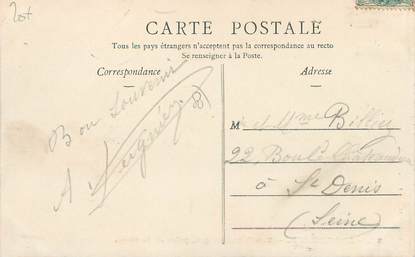 20t
CARTE POSTALE
Tous les pays étrangers n'acceptent pas la correspondance au recto
Se renseigner à la Poste.
Correspondance
Adresse
Bon Souvenir
A
M et Mme
22, Boul.
à St Denis
(Seine)